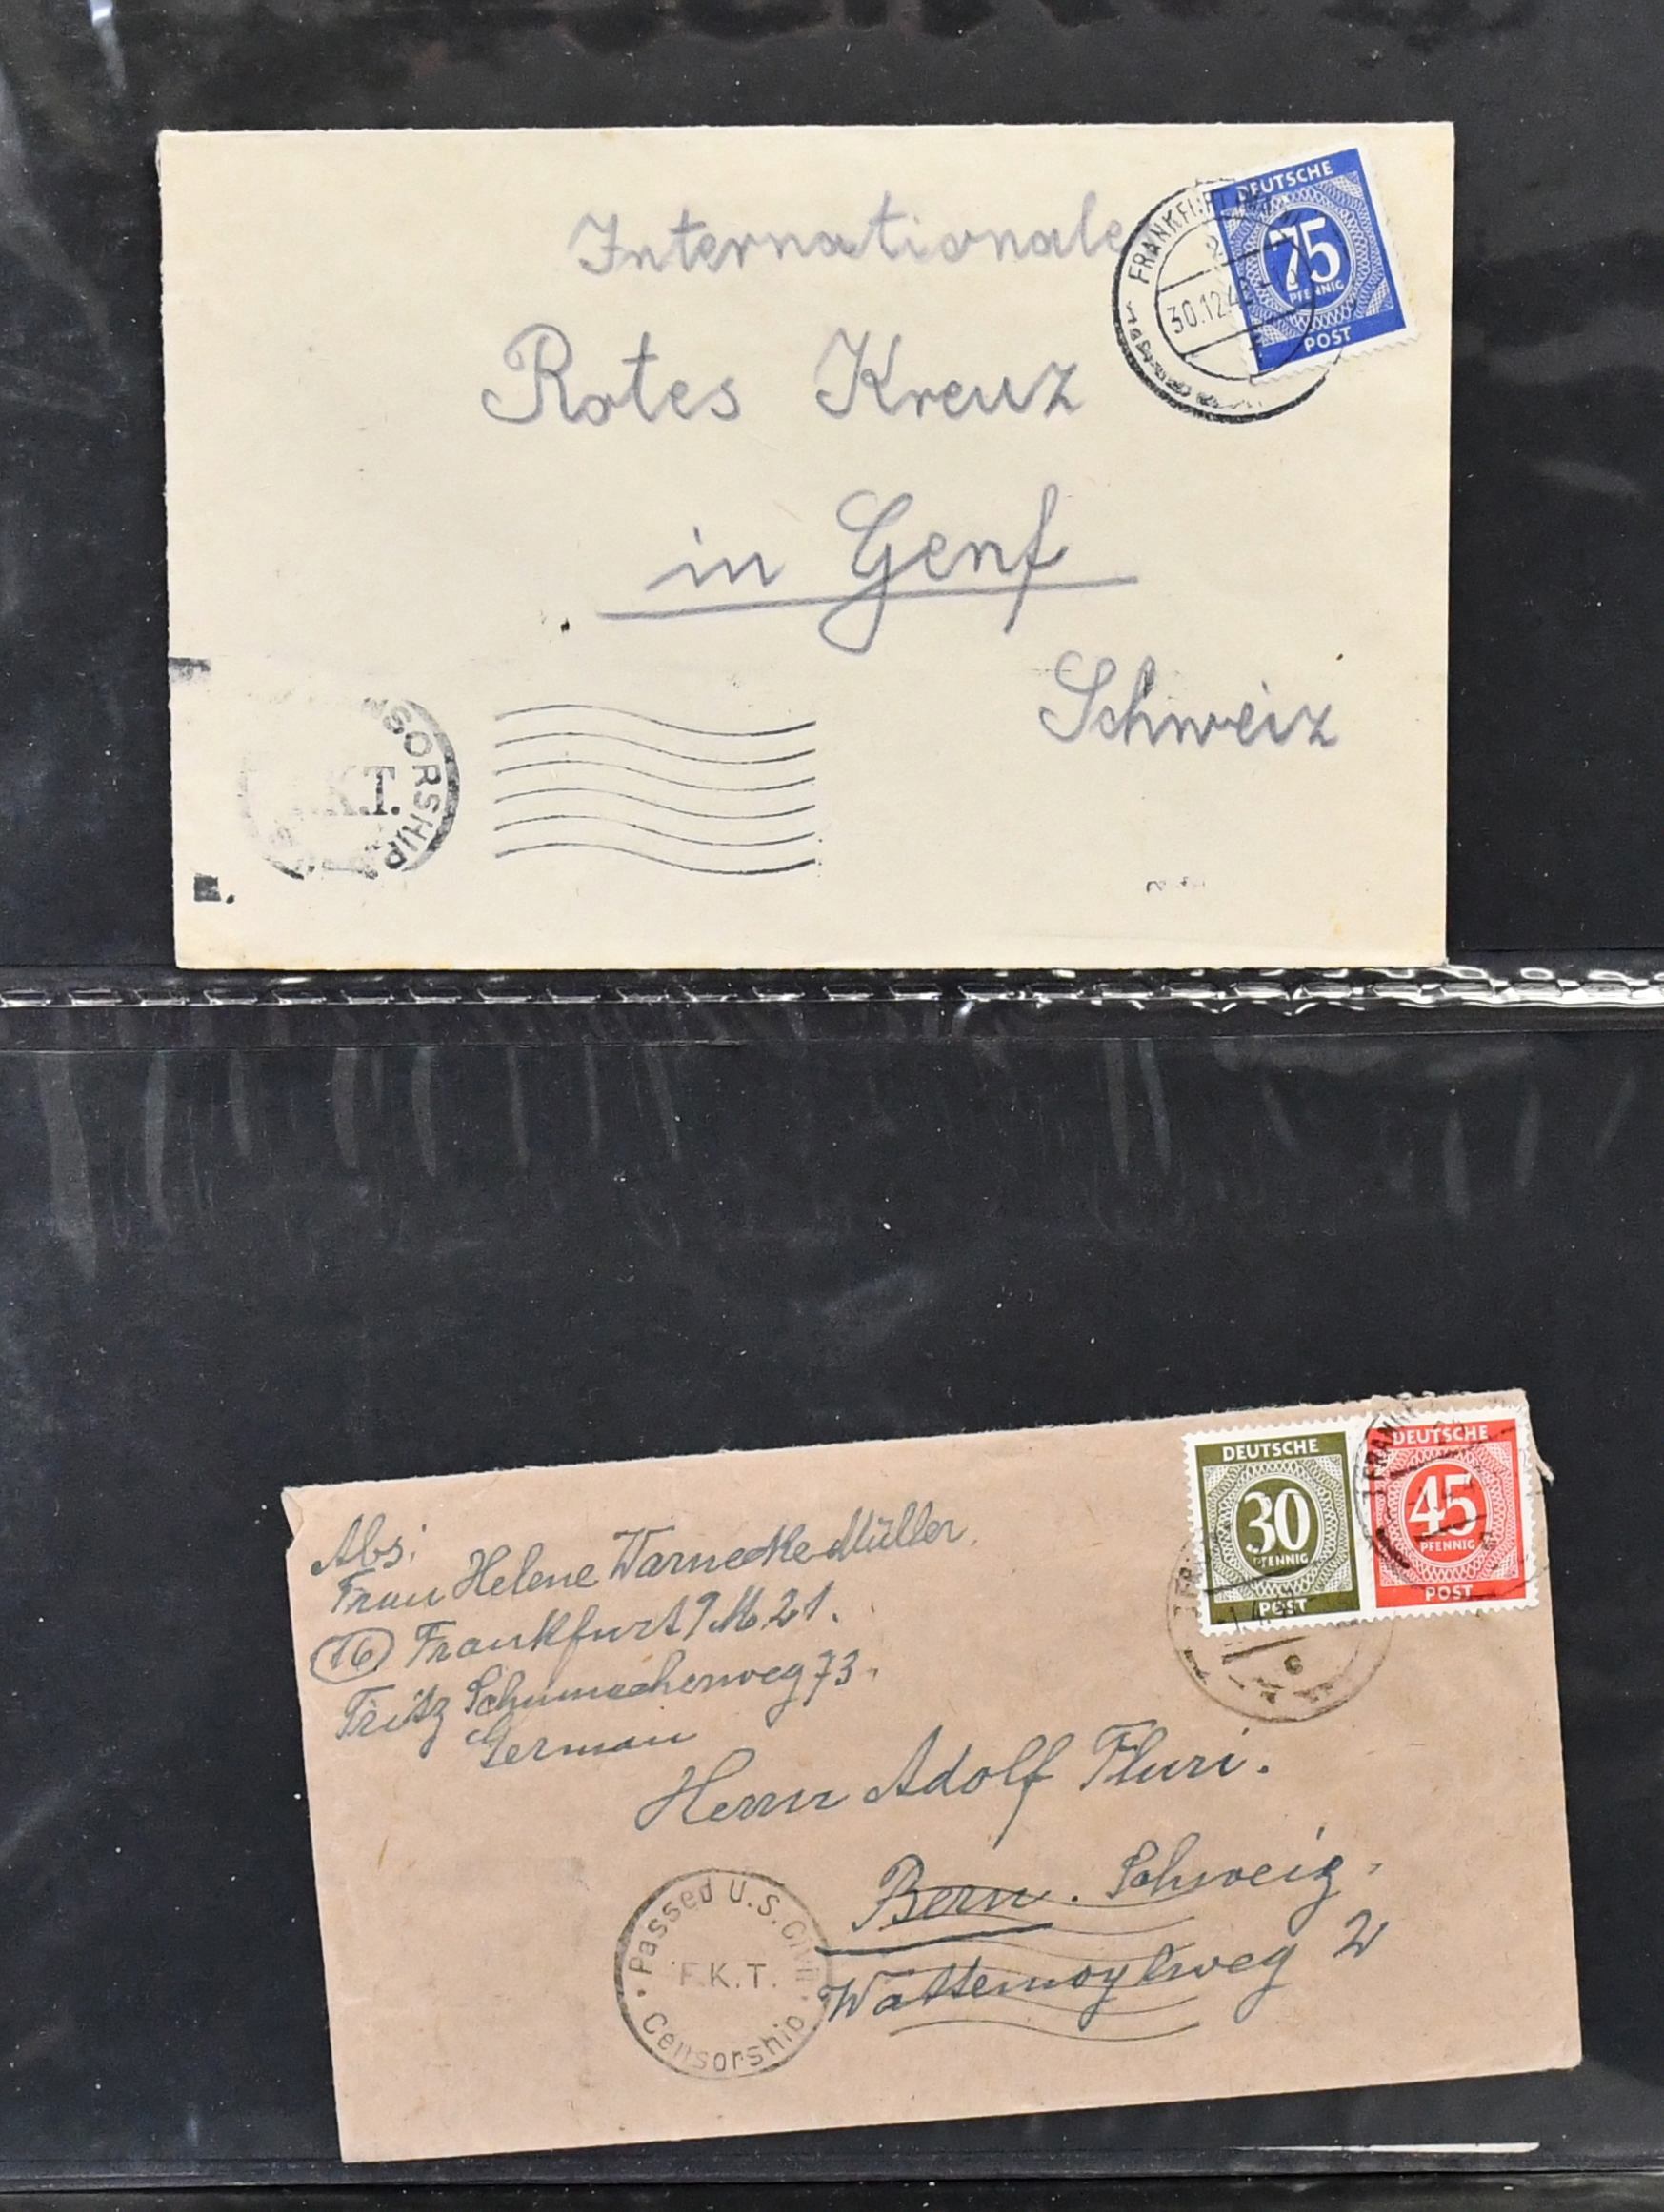 Internationale
Rotes Kreuz
in Genf
Schweiz
DEUTSCHE
75
PFENNIG
POST
30.12.4
SORSHIP
K.T.
Abs:
Frau Helene Warnecke Müller.
(16) Frankfurt 9/M. 21.
Fritz Schumacherweg 73.
German
DEUTSCHE
30
PFENNIG
POST
DEUTSCHE
45
PFENNIG
POST
Herrn Adolf Fluri.
Bern. Schweiz.
2
Passed U.S. Civil
F.K.T.
Censorship